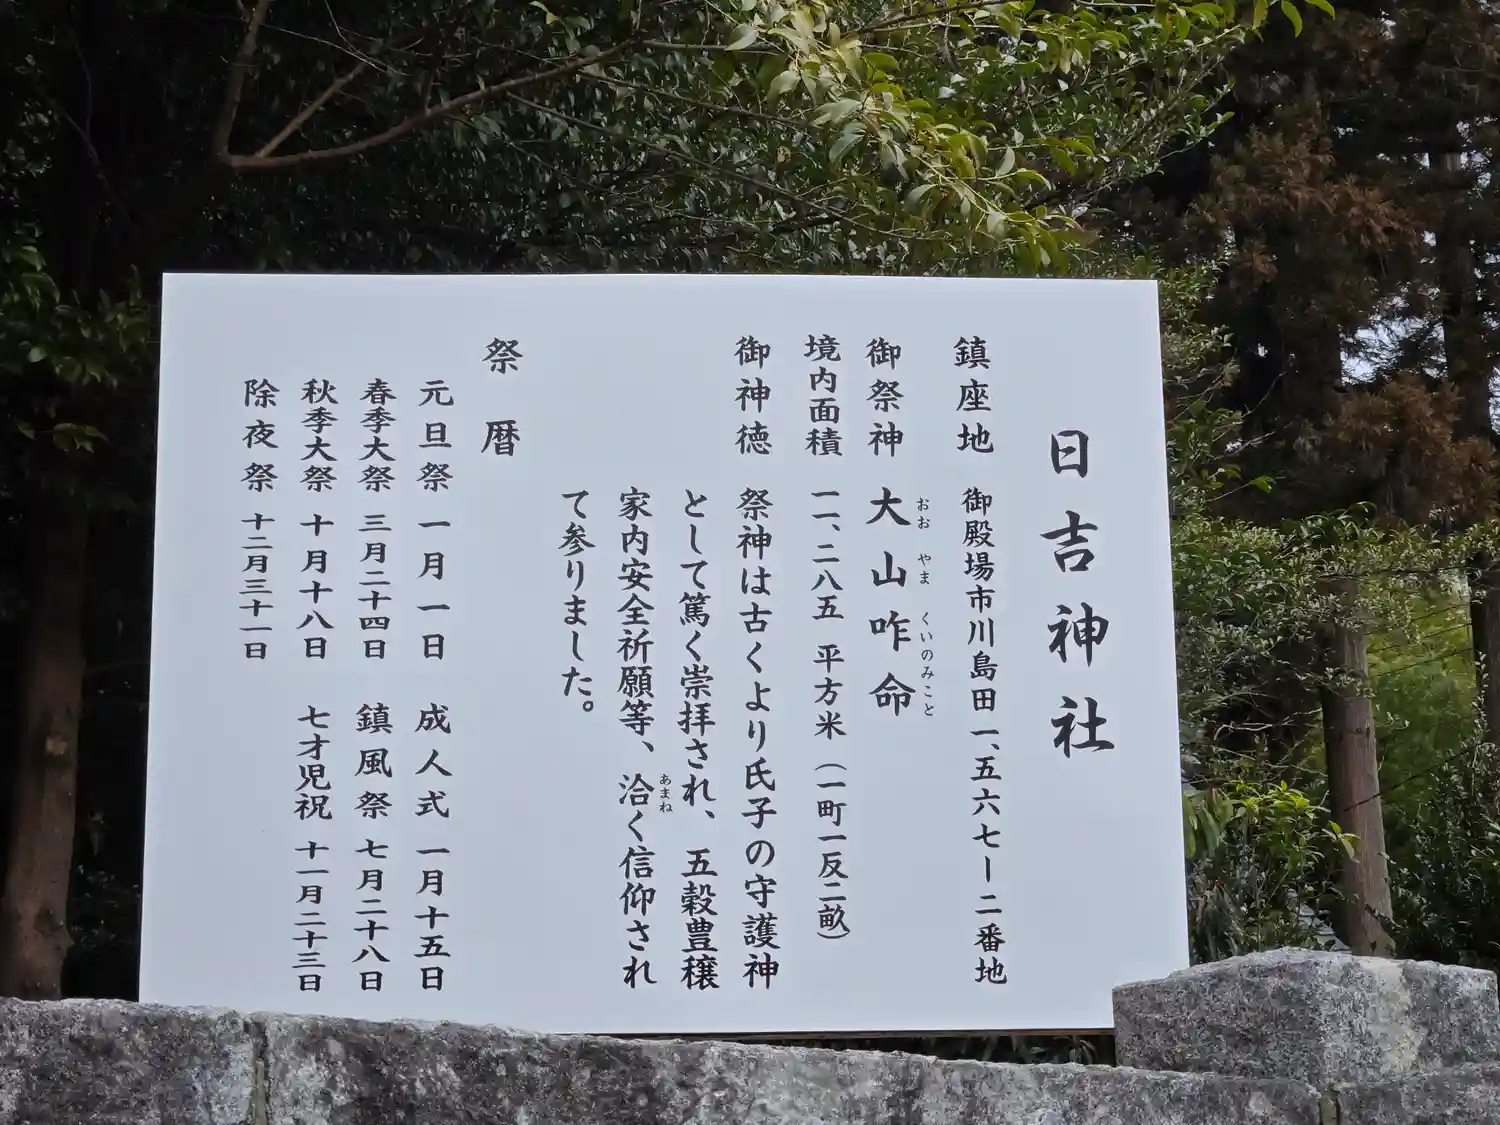 日吉神社
鎮座地　御殿場市川島田一、五六七ー二番地
御祭神　大山咋命
おお　やま　くいのみこと
境内面積　一一、二八五　平方米（一町一反二畝）
御神徳　祭神は古くより氏子の守護神
として篤く崇拝され、五穀豊穣
家内安全祈願等、洽く信仰され
あまね
て参りました。
祭暦
元旦祭　一月一日　成人式　一月十五日
春季大祭　三月二十四日　鎮風祭　七月二十八日
秋季大祭　十月十八日　七才児祝　十一月二十三日
除夜祭　十二月三十一日